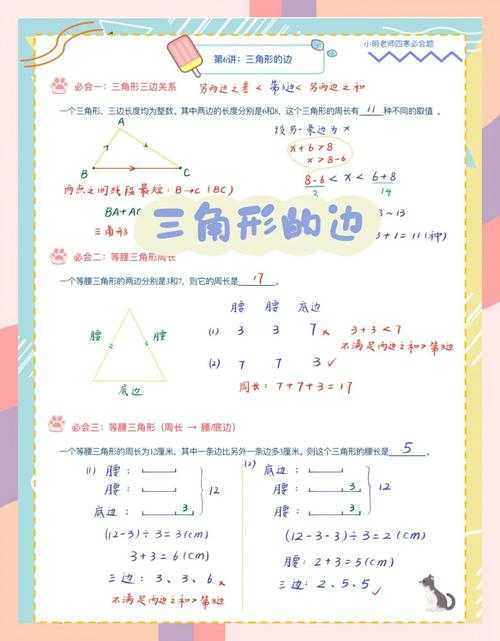 第6讲：三角形的边
小明老师四寒必会题
必会一：三角形三边关系 另两边之差 < 第3边 < 另两边之和
一个三角形，三边长度均为整数。其中两边的长度分别是6和8，这个三角形的周长有 11 种不同的取值 。
设另一条边为x
A
x+6>8
x>8-6
B C
8-6 < x < 6+8
2 14
两点之间线段最短：B→C（BC）
BA+AC
3~13
三角形
三角形的边
3+1=11(种)
必会二：等腰三角形周长
一个等腰三角形的两边分别是3和7，则它的周长是 17 。
腰 腰 底边
腰 腰
(1) 3 3 7 × 3+3<7
不满足两边之和>第3边
(2) 7 7 3 ✓
底边
周长：7+7+3=17
必会三：等腰三角形（周长 → 腰/底边）
一个等腰三角形的周长为12厘米，其中一条边比另外一条边多3厘米。则这个三角形的腰长是 5 。
(1) 腰：
腰： 12
底边： 3
(12-3)÷3=3(cm)
3+3=6(cm)
三边：3、3、6 ×
不满足两边之和>第3边
(2) 底边：
腰： 3 12
腰： 3
(12-3-3)÷3=2(cm)
腰：2+3=5(cm)
三边：2、5、5 ✓